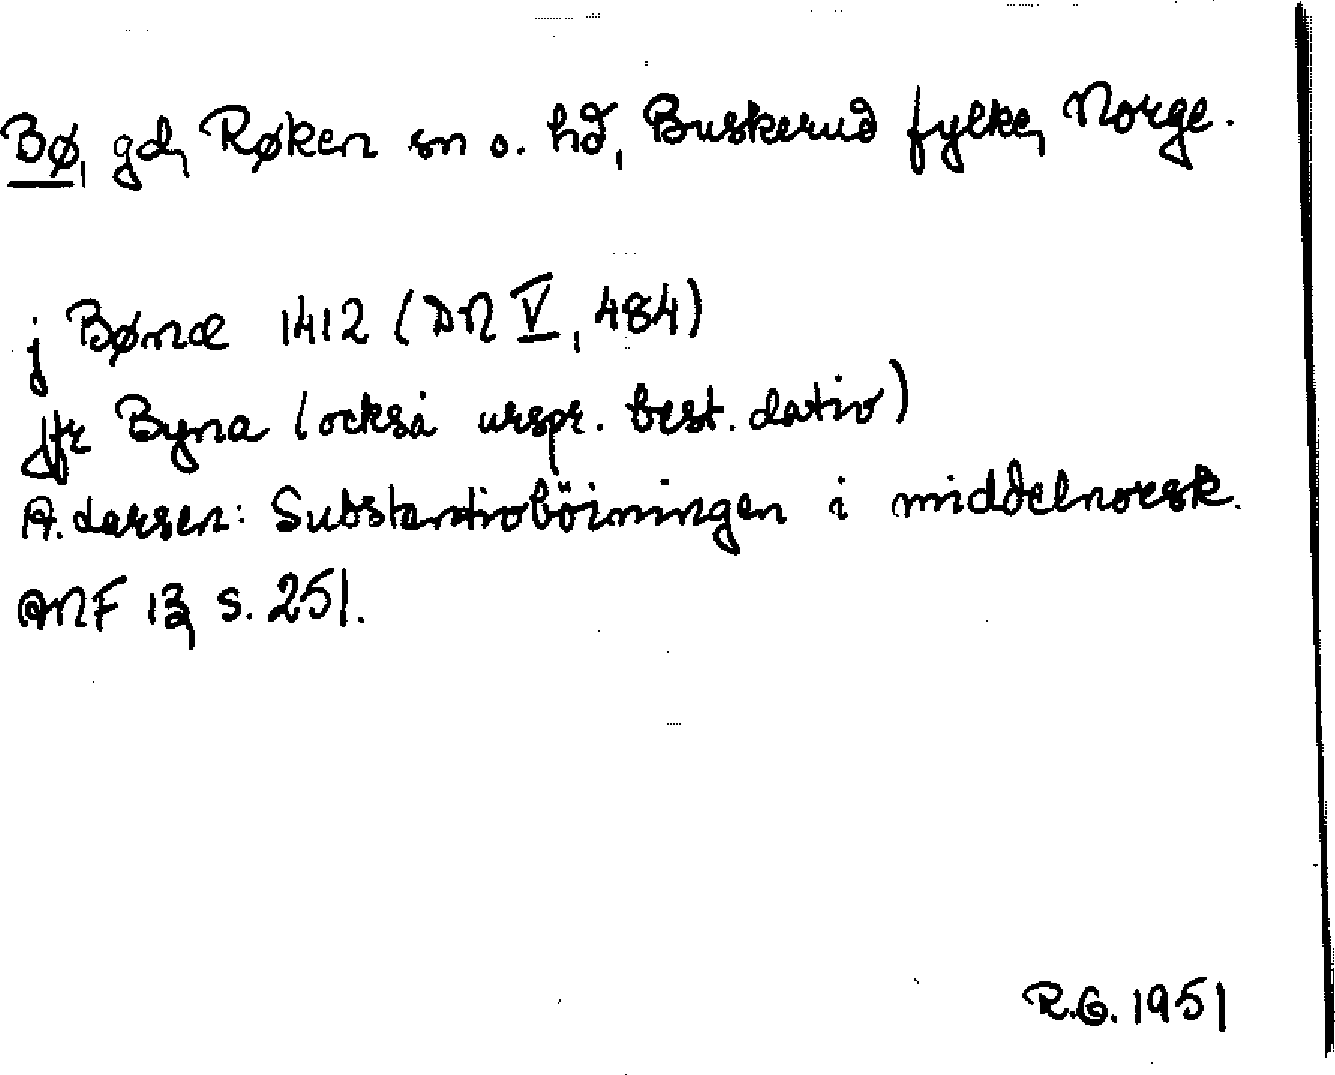 Bø, gd, Røken sn o. hd, Buskerud fylke, Norge.
j Bønæ 1412 (DN V, 484)
Jfr Byna (också urspr. best. dativ)
A. Larsen: Substantivböiningen i middelnorsk.
ANF 13, s. 251.
R.G. 1951